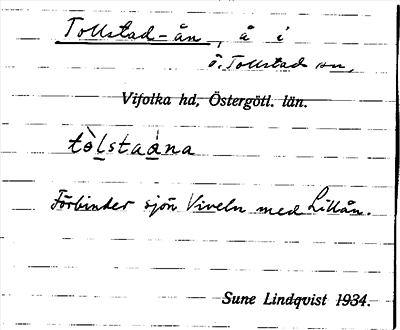 Tollstad-ån, å i
Ö. Tollstad sn,
Vifolka hd, Östergötl. län.
tòlstaána
Förbinder sjön Viveln med Lillån.
Sune Lindqvist 1934.